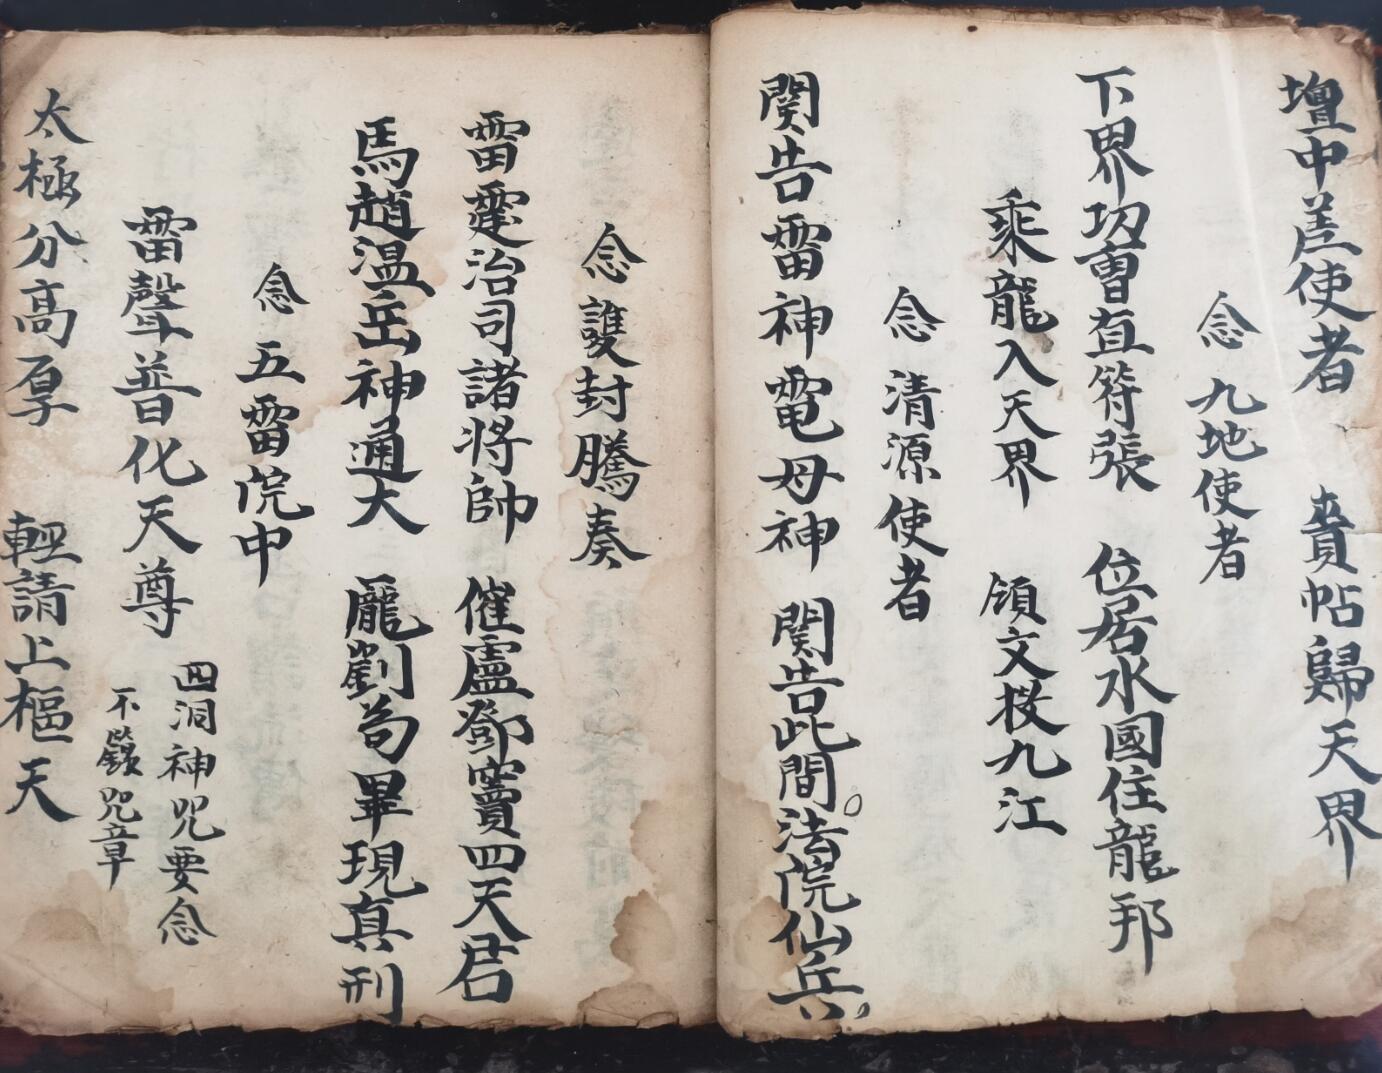 壇中差使者　賫帖歸天界
念九地使者
下界功曹直符張　位居水國住龍邦
乘龍入天界　領文投九江
念清源使者
関告雷神電母神　関告此間法院仙兵
念護封騰奏
雷霆治司諸將帥　催盧鄧竇四天君
馬趙溫岳神通大　龐劉苟畢現真刑
念五雷院中
雷聲普化天尊
四洞神咒要念
不念咒章
太極分高厚　輕請上樞天